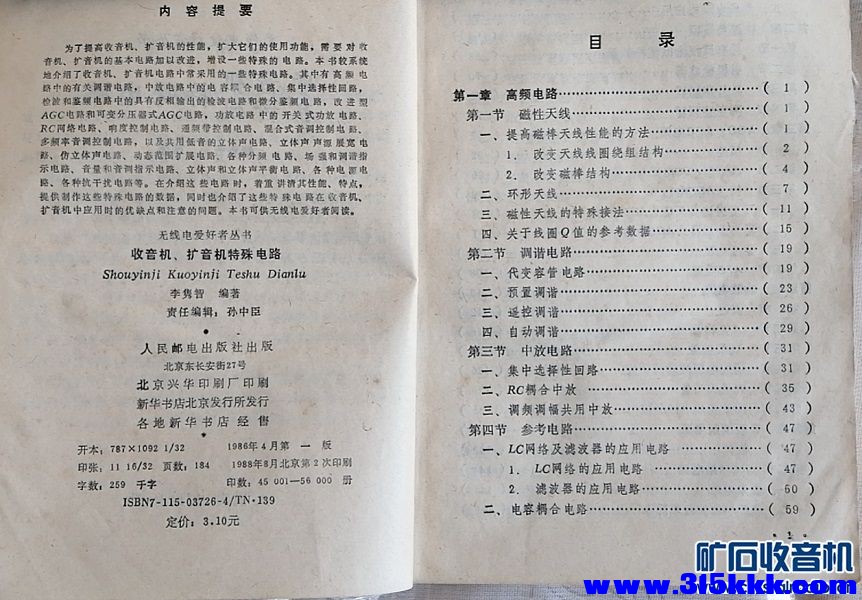 内容提要
为了提高收音机、扩音机的性能，扩大它们的使用功能，需要对收
音机、扩音机的基本电路加以改进，增设一些特殊的电路。本书较系统
地介绍了收音机、扩音机电路中常采用的一些特殊电路。其中有高频电
路中的有关调谐电路，中放电路中的电容耦合电路、集中选择性回路，
检波和鉴频电路中的具有反相输出的检波电路和微分鉴频电路，改进型
AGC电路和可变分压器式AGC电路，功放电路中的开关式功放电路、
RC网络电路、响度控制电路、通频带控制电路、混合式音调控制电路、
多频率音调控制电路，以及共用低音的立体声电路、立体声声源展宽电
路、仿立体声电路、动态范围扩展电路、各种分频电路、场强和调谐指
示电路、音量和音调指示电路、立体声和立体声平衡电路、各种电源电
路、各种抗干扰电路等。在介绍这些电路时，着重讲清其性能、特点，
提供制作这些特殊电路的数据，同时也介绍了这些特殊电路在收音机、
扩音机中应用时的优缺点和注意的问题。本书可供无线电爱好者阅读。
无线电爱好者丛书
收音机、扩音机特殊电路
Shouyinji Kuoyinji Teshu Dianlu
李隽智 编著
责任编辑：孙中臣
人民邮电出版社出版
北京东长安街27号
北京兴华印刷厂印刷
新华书店北京发行所发行
各地新华书店经售
开本：787×1092 1/32 1986年4月第一版
印张：11 16/32 页数：184 1988年8月北京第2次印刷
字数：259 千字 印数：45 001—56 000 册
ISBN7-115-03726-4/TN·139
定价：3.10元
目录
第一章 高频电路……（1）
第一节 磁性天线……（1）
一、提高磁棒天线性能的方法……（1）
1．改变天线线圈绕组结构……（2）
2．改变磁棒结构……（4）
二、环形天线……（7）
三、磁性天线的特殊接法……（11）
四、关于线圈Q值的参考数据……（15）
第二节 调谐电路……（19）
一、代变容管电路……（19）
二、预置调谐……（23）
三、遥控调谐……（26）
四、自动调谐……（29）
第三节 中放电路……（31）
一、集中选择性回路……（31）
二、RC耦合中放……（35）
三、调频调幅共用中放……（43）
第四节 参考电路……（47）
一、LC网络及滤波器的应用电路……（47）
1．LC网络的应用电路……（47）
2．滤波器的应用电路……（50）
二、电容耦合电路……（59）
·1·
矿石收音机
www.315kkk.com